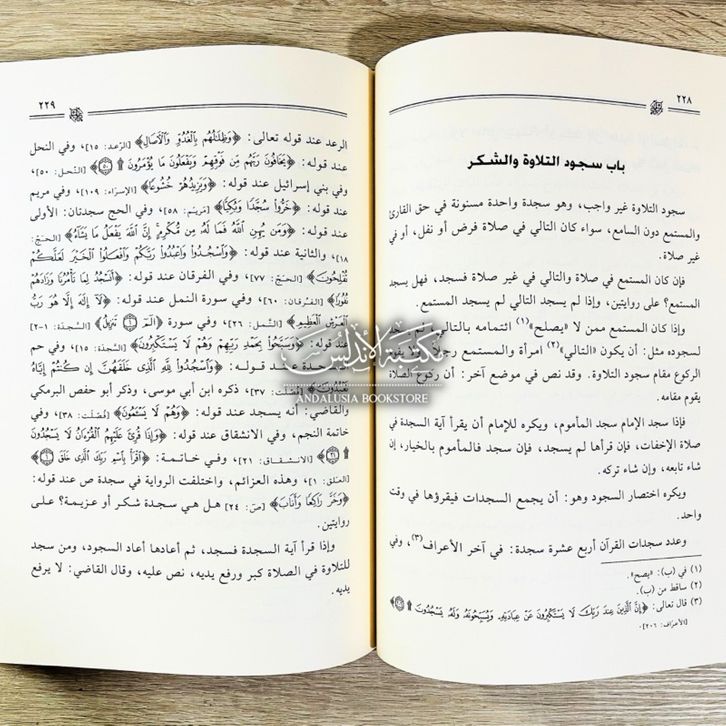 ٢٢٨
باب سجود التلاوة والشكر
سجود التلاوة غير واجب، وهو سجدة واحدة مسنونة في حق القارئ
والمستمع دون السامع، سواء كان التالي في صلاة فرض أو نفل، أو في
غير صلاة.
فإن كان المستمع في صلاة والتالي في غير صلاة فسجد، فهل يسجد
المستمع؟ على روايتين، وإذا لم يسجد التالي لم يسجد المستمع.
وإذا كان المستمع ممن لا «يصلح»(١) ائتمامه بالتالي
لسجوده مثل: أن يكون «التالي»(٢) امرأة والمستمع رجلًا يقوم
الركوع مقام سجود التلاوة. وقد نص في موضع آخر: أن ركوع الصلاة
يقوم مقامه.
فإذا سجد الإمام سجد المأموم، ويكره للإمام أن يقرأ آية السجدة في
صلاة الإخفات، فإن قرأها لم يسجد، فإن سجد فالمأموم بالخيار، إن
شاء تابعه، وإن شاء تركه.
ويكره اختصار السجود وهو: أن يجمع السجدات فيقرؤها في وقت
واحد.
وعدد سجدات القرآن أربع عشرة سجدة: في آخر الأعراف(٣)، وفي
(١) في (ب): «يصح».
(٢) ساقط من (ب).
(٣) قال تعالى: ﴿إِنَّ الَّذِينَ عِندَ رَبِّكَ لَا يَسْتَكْبِرُونَ عَنْ عِبَادَتِهِ وَيُسَبِّحُونَهُ وَلَهُ يَسْجُدُونَ﴾
[الأعراف: ٢٠٦].
٢٢٩
الرعد عند قوله تعالى: ﴿وَظِلَالُهُم بِالْغُدُوِّ وَالْآصَالِ﴾ [الرعد: ١٥]، وفي النحل
عند قوله: ﴿يَخَافُونَ رَبَّهُم مِّن فَوْقِهِمْ وَيَفْعَلُونَ مَا يُؤْمَرُونَ﴾ [النحل: ٥٠]،
وفي بني إسرائيل عند قوله: ﴿وَيَزِيدُهُمْ خُشُوعًا﴾ [الإسراء: ١٠٩]، وفي مريم
عند قوله: ﴿خَرُّوا سُجَّدًا وَبُكِيًّا﴾ [مريم: ٥٨]، وفي الحج سجدتان: الأولى
عند قوله: ﴿وَمَن يُهِنِ اللَّهُ فَمَا لَهُ مِن مُّكْرِمٍ إِنَّ اللَّهَ يَفْعَلُ مَا يَشَاءُ﴾ [الحج:
١٨]، والثانية عند قوله: ﴿وَاسْجُدُوا وَاعْبُدُوا رَبَّكُمْ وَافْعَلُوا الْخَيْرَ لَعَلَّكُمْ
تُفْلِحُونَ﴾ [الحج: ٧٧]، وفي الفرقان عند قوله: ﴿أَنَسْجُدُ لِمَا تَأْمُرُنَا وَزَادَهُمْ
نُفُورًا﴾ [الفرقان: ٦٠]، وفي سورة النمل عند قوله: ﴿لَا إِلَهَ إِلَّا هُوَ رَبُّ
الْعَرْشِ الْعَظِيمِ﴾ [النمل: ٢٦]، وفي سورة ﴿الم تَنزِيلُ﴾ [السجدة: ١-٢]
عند قوله: ﴿وَسَبَّحُوا بِحَمْدِ رَبِّهِمْ وَهُمْ لَا يَسْتَكْبِرُونَ﴾ [السجدة: ١٥]، وفي حم
عند قوله: ﴿وَاسْجُدُوا لِلَّهِ الَّذِي خَلَقَهُنَّ إِن كُنتُمْ إِيَّاهُ
تَعْبُدُونَ﴾ [فصلت: ٣٧] ذكره ابن أبي موسى، وذكر أبو حفص البرمكي
والقاضي: أنه يسجد عند قوله: ﴿وَهُمْ لَا يَسْئَمُونَ﴾ [فصلت: ٣٨]، وفي
خاتمة النجم، وفي الانشقاق عند قوله: ﴿وَإِذَا قُرِئَ عَلَيْهِمُ الْقُرْآنُ لَا يَسْجُدُونَ﴾
[الانشقاق: ٢١]، وفي خاتمة: ﴿اقْرَأْ بِاسْمِ رَبِّكَ الَّذِي خَلَقَ﴾
[العلق: ١]، وهذه العزائم، واختلفت الرواية في سجدة ص عند قوله:
﴿وَخَرَّ رَاكِعًا وَأَنَابَ﴾ [ص: ٢٤] هل هي سجدة شكر أو عزيمة؟ على
روايتين.
وإذا قرأ آية السجدة فسجد، ثم أعادها أعاد السجود، ومن سجد
للتلاوة في الصلاة كبر ورفع يديه، نص عليه، وقال القاضي: لا يرفع
يديه.
مكتبة الأندلس
ANDALUSIA BOOKSTORE